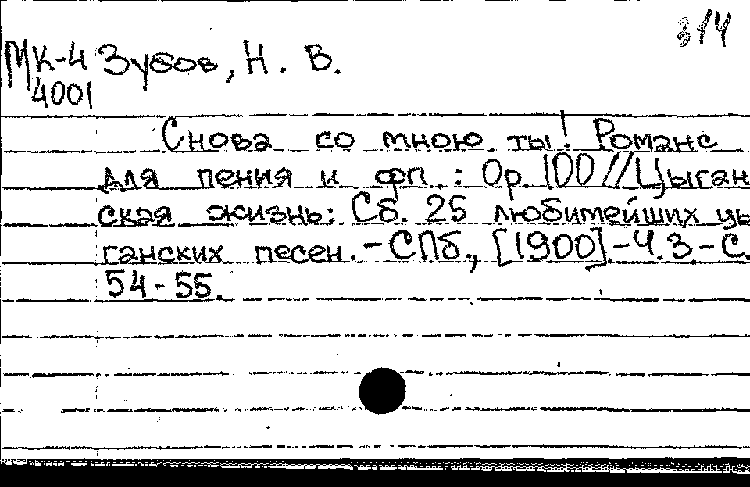 314
МК-4 Зубов, Н. В.
4001
Снова со мною ты! Романс
для пения и фп.: Ор. 100 // Цыган
ская жизнь: Сб. 25 любимейших цы
ганских песен. - СПб., [1900]. - Ч. 3. - С.
54-55.